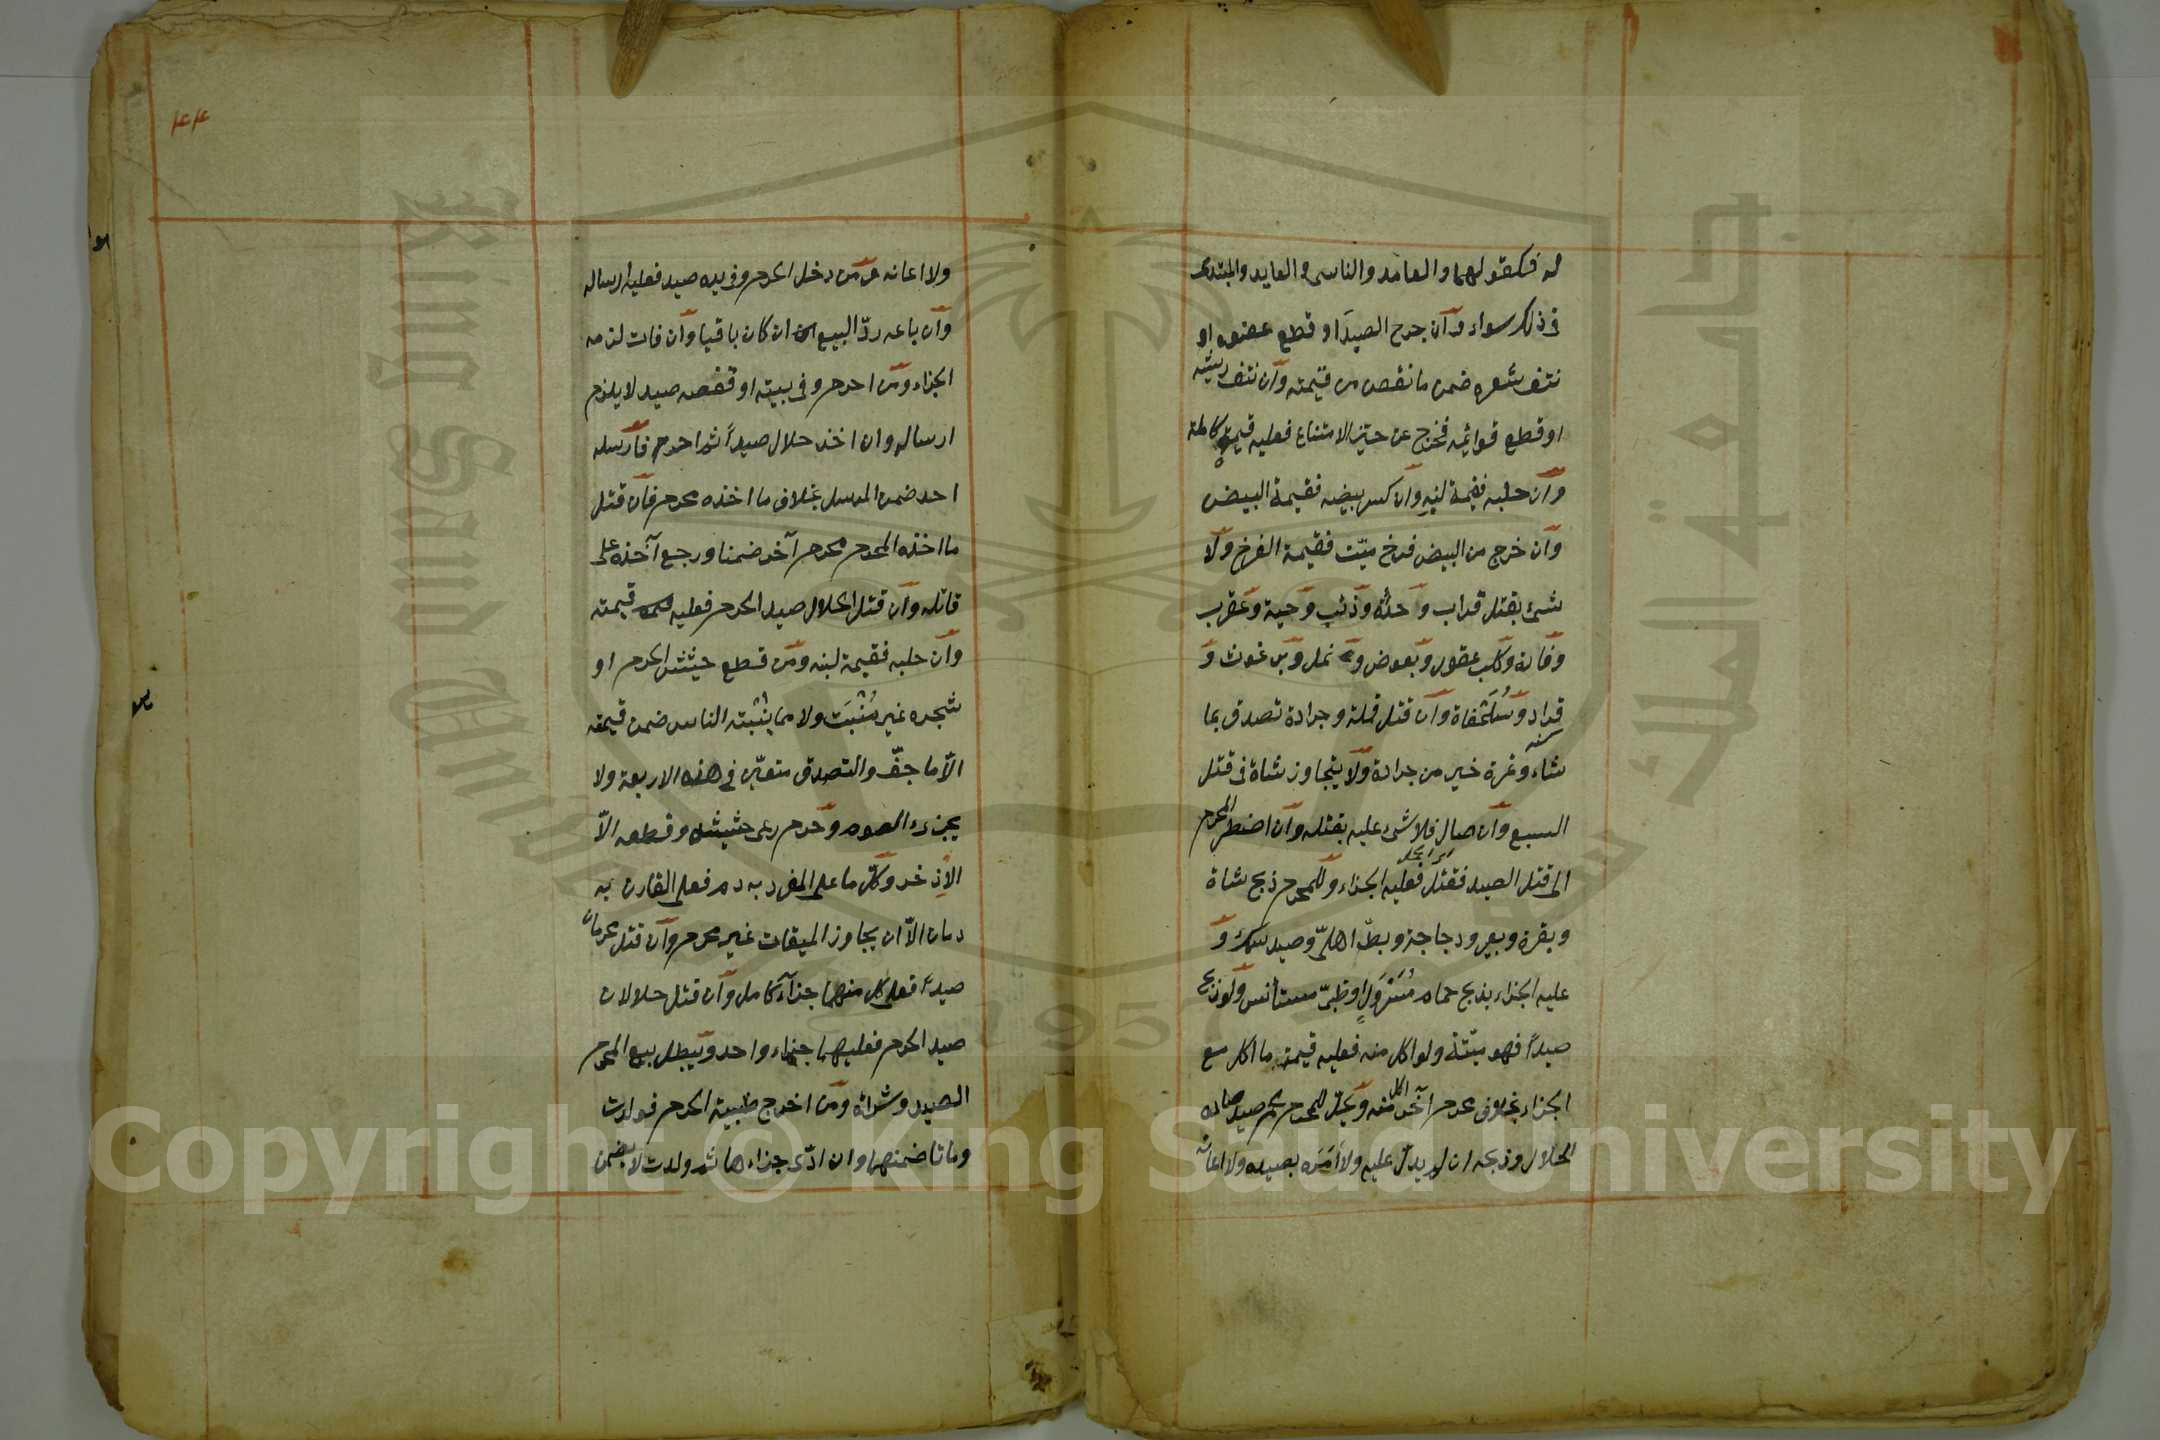 له فكقولهما والعامد والناسى والعايد والمبتدى
فى ذلك سواء وان جرح الصيد او قطع عضوه او
نتف شعره ضمن ما نقص من قيمته وان نتف ريشه
او قطع قوائمه فخرج عن حيز الامتناع فعليه قيمته كاملة
وان حلبه فقيمة لبنه وان كسر بيضه فقيمة البيض
وان خرج من البيض فرخ ميّت فقيمة الفرخ ولا
شئ بقتل غراب وحدأة وذئب وحية وعقرب
وفارة وكلب عقور وبعوض ونمل وبرغوث و
قراد وسُلَحْفاة وان قتل قملة وجرادة تصدق بما
شاء وتمرة خير من جرادة ولا يتجاوز شاة فى قتل
السبع وان صال فلا شئ عليه بقتله وان اضطر المحرم
الى قتل الصيد فقتل فعليه الجزاء وللمحرم ذبح شاة
وبقرة وبعير ودجاجة وبطّ اهلىّ وصيد سمك و
عليه الجزاء بذبح حمام مُسَرْوَلٍ او ظبىّ مستأنس ولو ذبح
صيداً فهو ميتة ولو اكل منه فعليه قيمة ما اكل مع
الجزاء بخلاف محرم آخر اكل منه ويحلّ للمحرم لحم صيد صاده
الحلال وذبحه ان لم يدلّ عليه ولا أمَرَه بصيده ولا اعانه
٤٤
ولا اعانه ومن دخل الحرم وفى يده صيد فعليه ارساله
وان باعه ردّ البيع ان كان باقيا وان فات لزمه
الجزاء ومن احرم وفى بيته او قفصه صيد لا يلزم
ارساله وان اخذ حلال صيداً ثم احرم فارسله
احد ضمن المرسل بخلاف ما اخذه محرم فان قتل
ما اخذه المحرم محرم آخر ضمنا ورجع آخذه على
قاتله وان قتل الحلال صيد الحرم فعليه قيمته
وان حلبه فقيمة لبنه ومن قطع حشيش الحرم او
شجره غير مُنْبَت ولا مما يُنْبته الناس ضمن قيمته
الّا ما جفّ والتصدق متعيّن فى هذه الاربعة ولا
يجزىء الصوم وحرم رعى حشيشه وقطعه الّا
الاذخر وكلّ ما على المفرد به دم فعلى القارن به
دمان الّا ان يجاوز الميقات غير محرم وان قتل محرمان
صيداً فعلى كل منهما جزآء كامل وان قتل حلالان
صيد الحرم فعليهما جزاء واحد ويبطل بيع المحرم
الصيد وشراه ومن اخرج ظبية الحرم فولدت
وماتا ضمنهما وان ادّى جزاءها ثم ولدت لا يضمن
Copyright © King Saud University
جامعة الملك سعود
King Saud University
1957